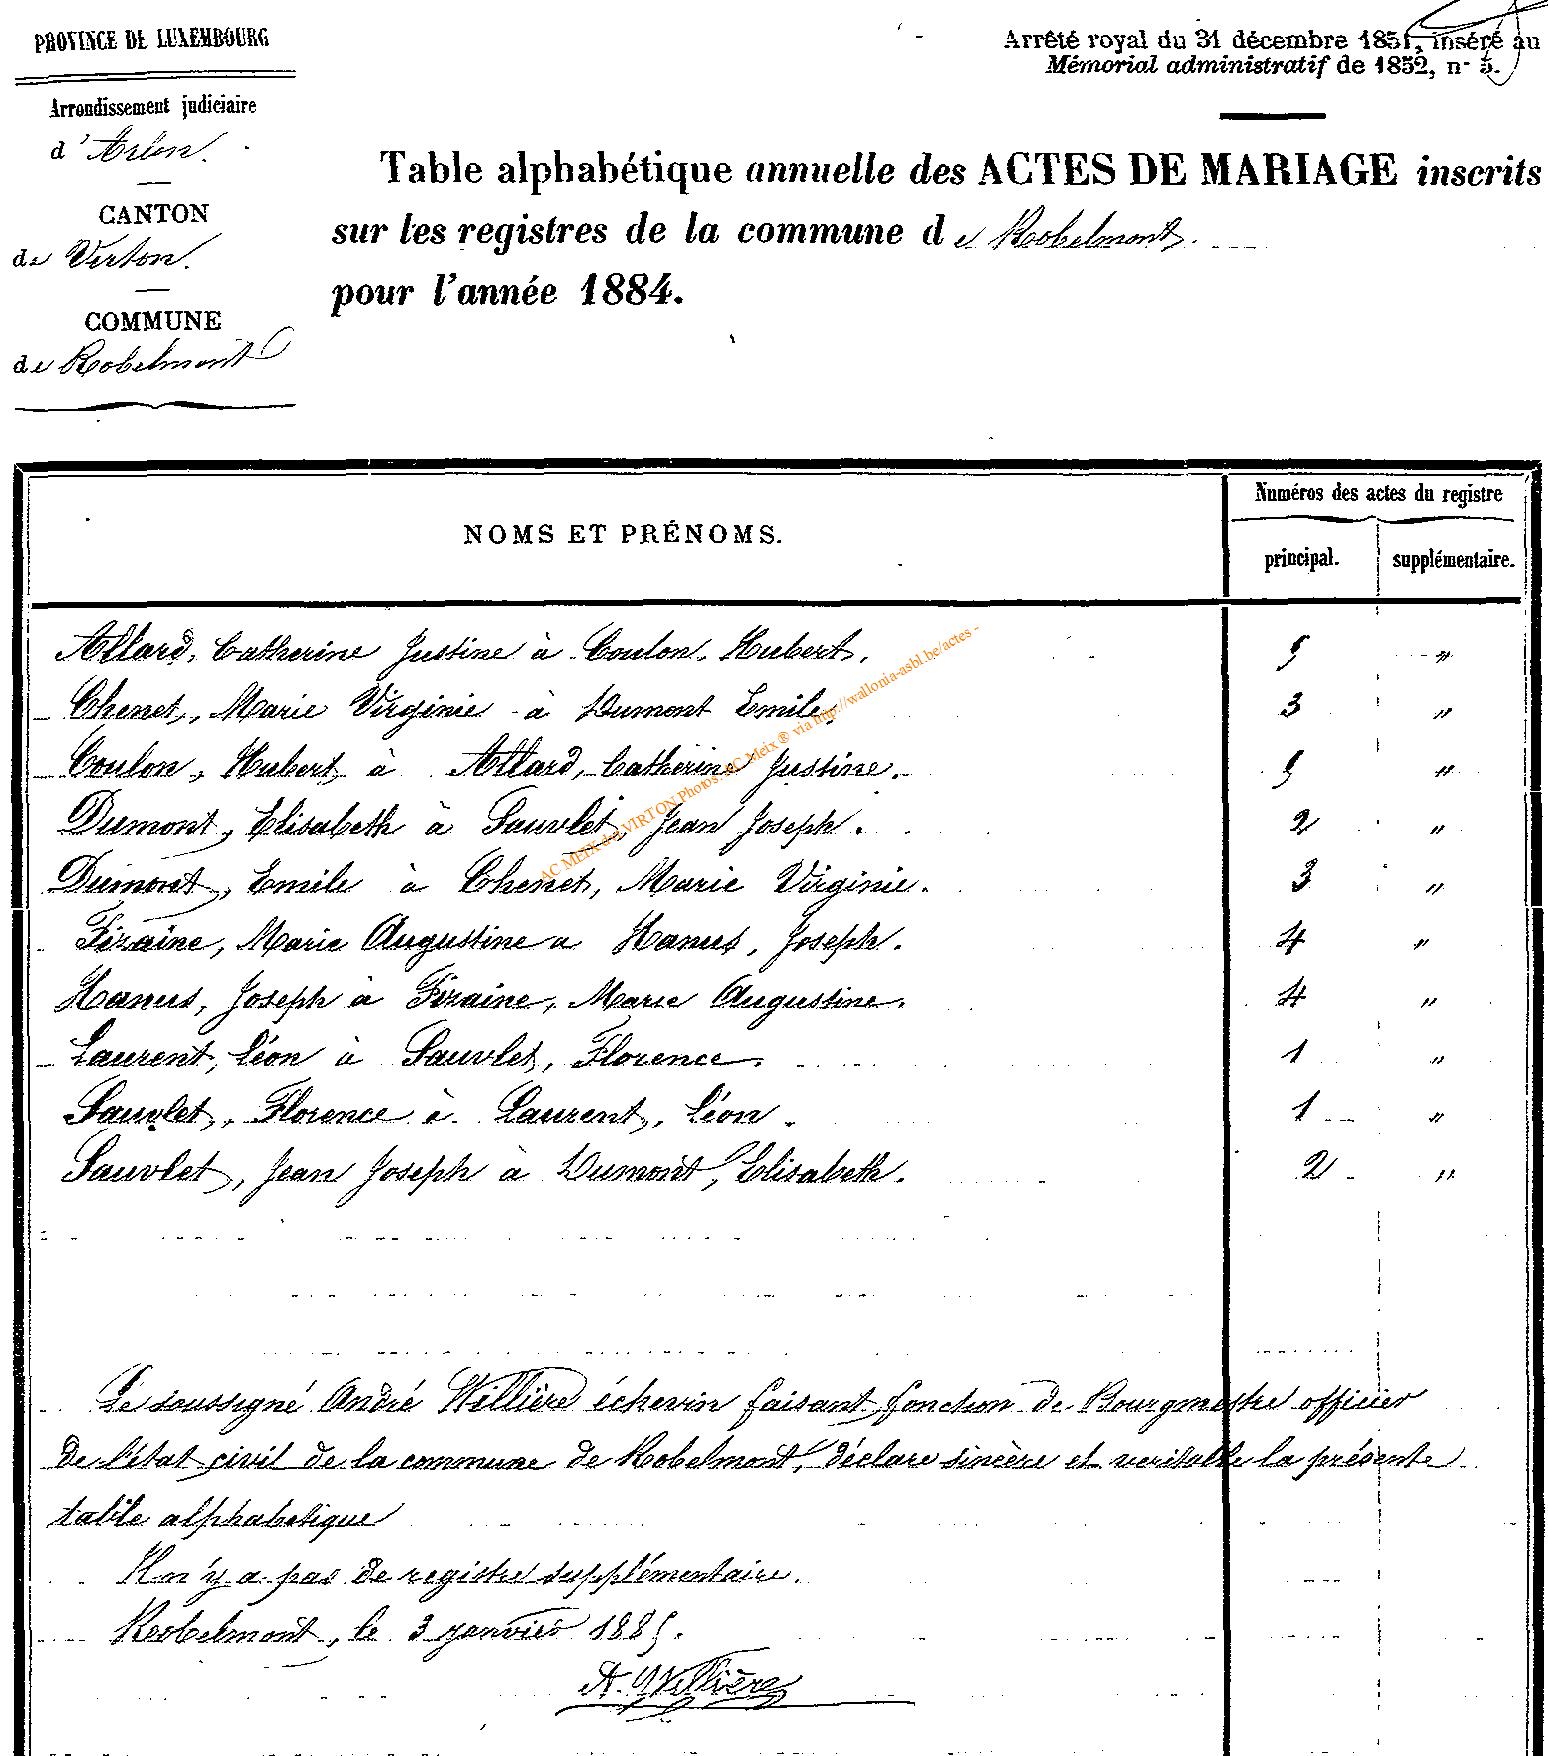 PROVINCE DE LUXEMBOURG
Arrondissement judiciaire
d'Arlon.
CANTON
de Virton.
COMMUNE
de Robelmont
Arrêté royal du 31 décembre 1851, inséré au
Mémorial administratif de 1852, n° 5.
Table alphabétique annuelle des ACTES DE MARIAGE inscrits
sur les registres de la commune de Robelmont.
pour l'année 1884.
NOMS ET PRÉNOMS.
Numéros des actes du registre
principal. supplémentaire.
Allard, Catherine Justine à Coulon, Hubert. 5 "
Chenet, Marie Virginie à Dumont Emile. 3 "
Coulon, Hubert à Allard, Catherine Justine. 5 "
Dumont, Elisabeth à Sauvlet, Jean Joseph. 2 "
Dumont, Emile à Chenet, Marie Virginie. 3 "
Firaine, Marie Augustine a Hanus, Joseph. 4 "
Hanus, Joseph à Firaine, Marie Augustine. 4 "
Laurent, Léon à Sauvlet, Florence. 1 "
Sauvlet, Florence à Laurent, Léon. 1 "
Sauvlet, Jean Joseph à Dumont, Elisabeth. 2 "
Le soussigné André Willière échevin faisant fonction de Bourgmestre officier
de l'état civil de la commune de Robelmont, déclare sincère et veritable la présente
table alphabetique
Il n'y a pas de registre supplémentaire.
Robelmont, le 3 janvier 1885.
A. Willière
AC MEIX dvt VIRTON Photos: AC Meix ® via http://wallonia-asbl.be/actes -